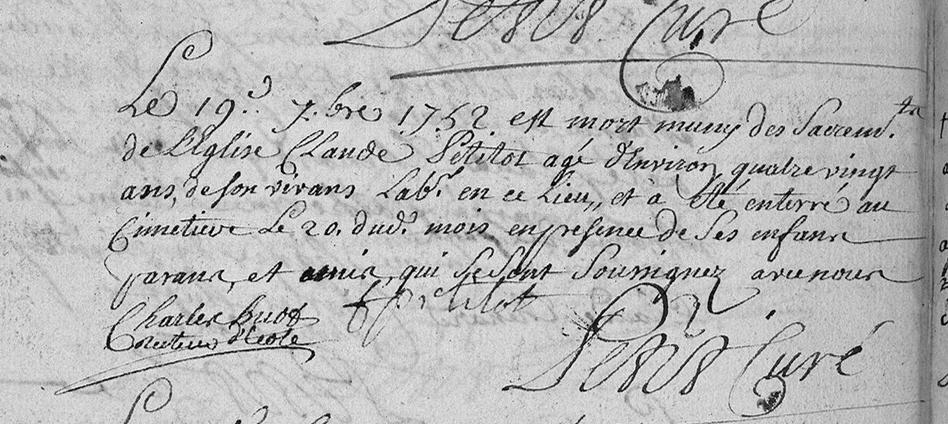 Petit Curé
Le 19.e 7.bre 1752 est mort muny des Sacrem.ts
de L'Eglise Claude Petitot agé d'Environ quatre vingt
ans, de son vivans Lab.r en ce Lieu, et à été enterré au
Cimetiere Le 20. dud.t mois en presence de Ses enfans
parans, et amis, qui Se Sont Soussignez avec nous
Charles Huot Petitot
Recteur d'Ecole
Petit Curé